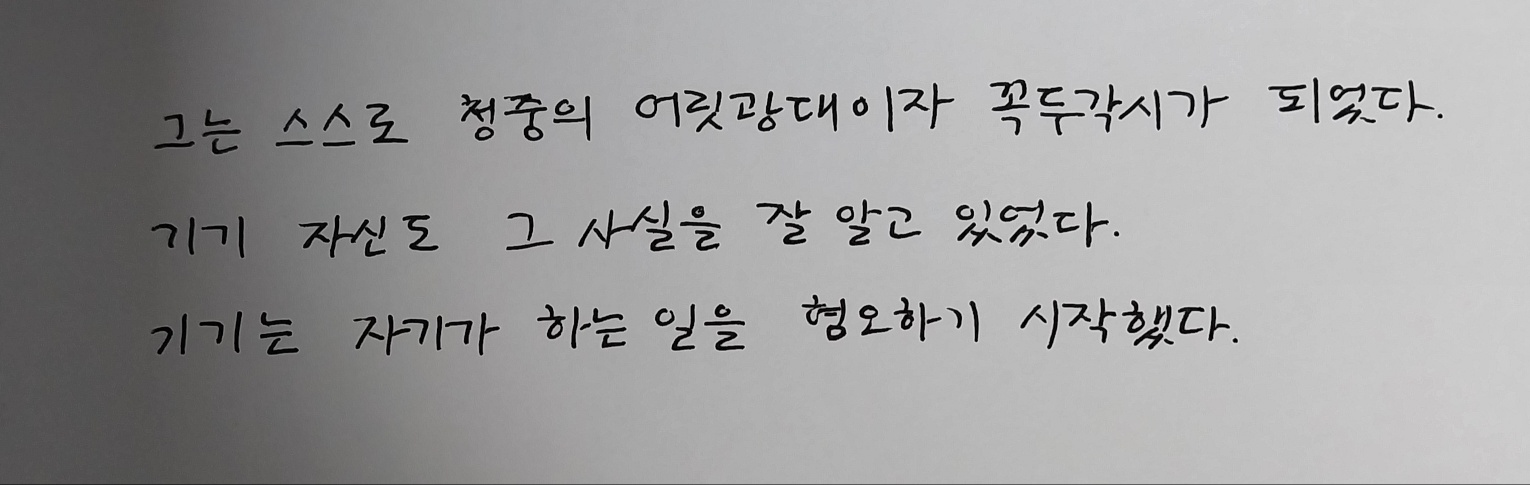 그는 스스로 청중의 어릿광대이자 꼭두각시가 되었다.
기기 자신도 그 사실을 잘 알고 있었다.
기기는 자기가 하는 일을 혐오하기 시작했다.